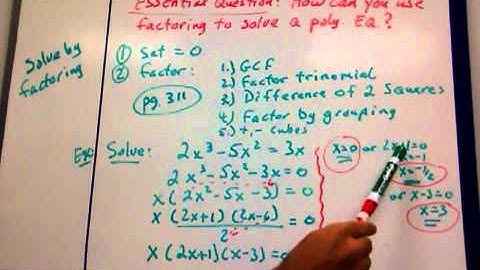 Essential Question: How can you use
factoring to solve a poly. EQ.?
Solve by
factoring
① Set = 0
② Factor: 1.) GCF
2) Factor trinomial
3) Difference of 2 Squares
4) Factor by grouping
5.) +,- cubes
pg. 311
Ex: Solve: 2x³-5x² = 3x
2x³-5x²-3x = 0
x(2x²-5x-3) = 0
x(2x+1)(2x-6) = 0
2
x(2x+1)(x-3) = 0
x=0 or 2x+1=0
=-1
x=-1/2
or x-3=0
x=3